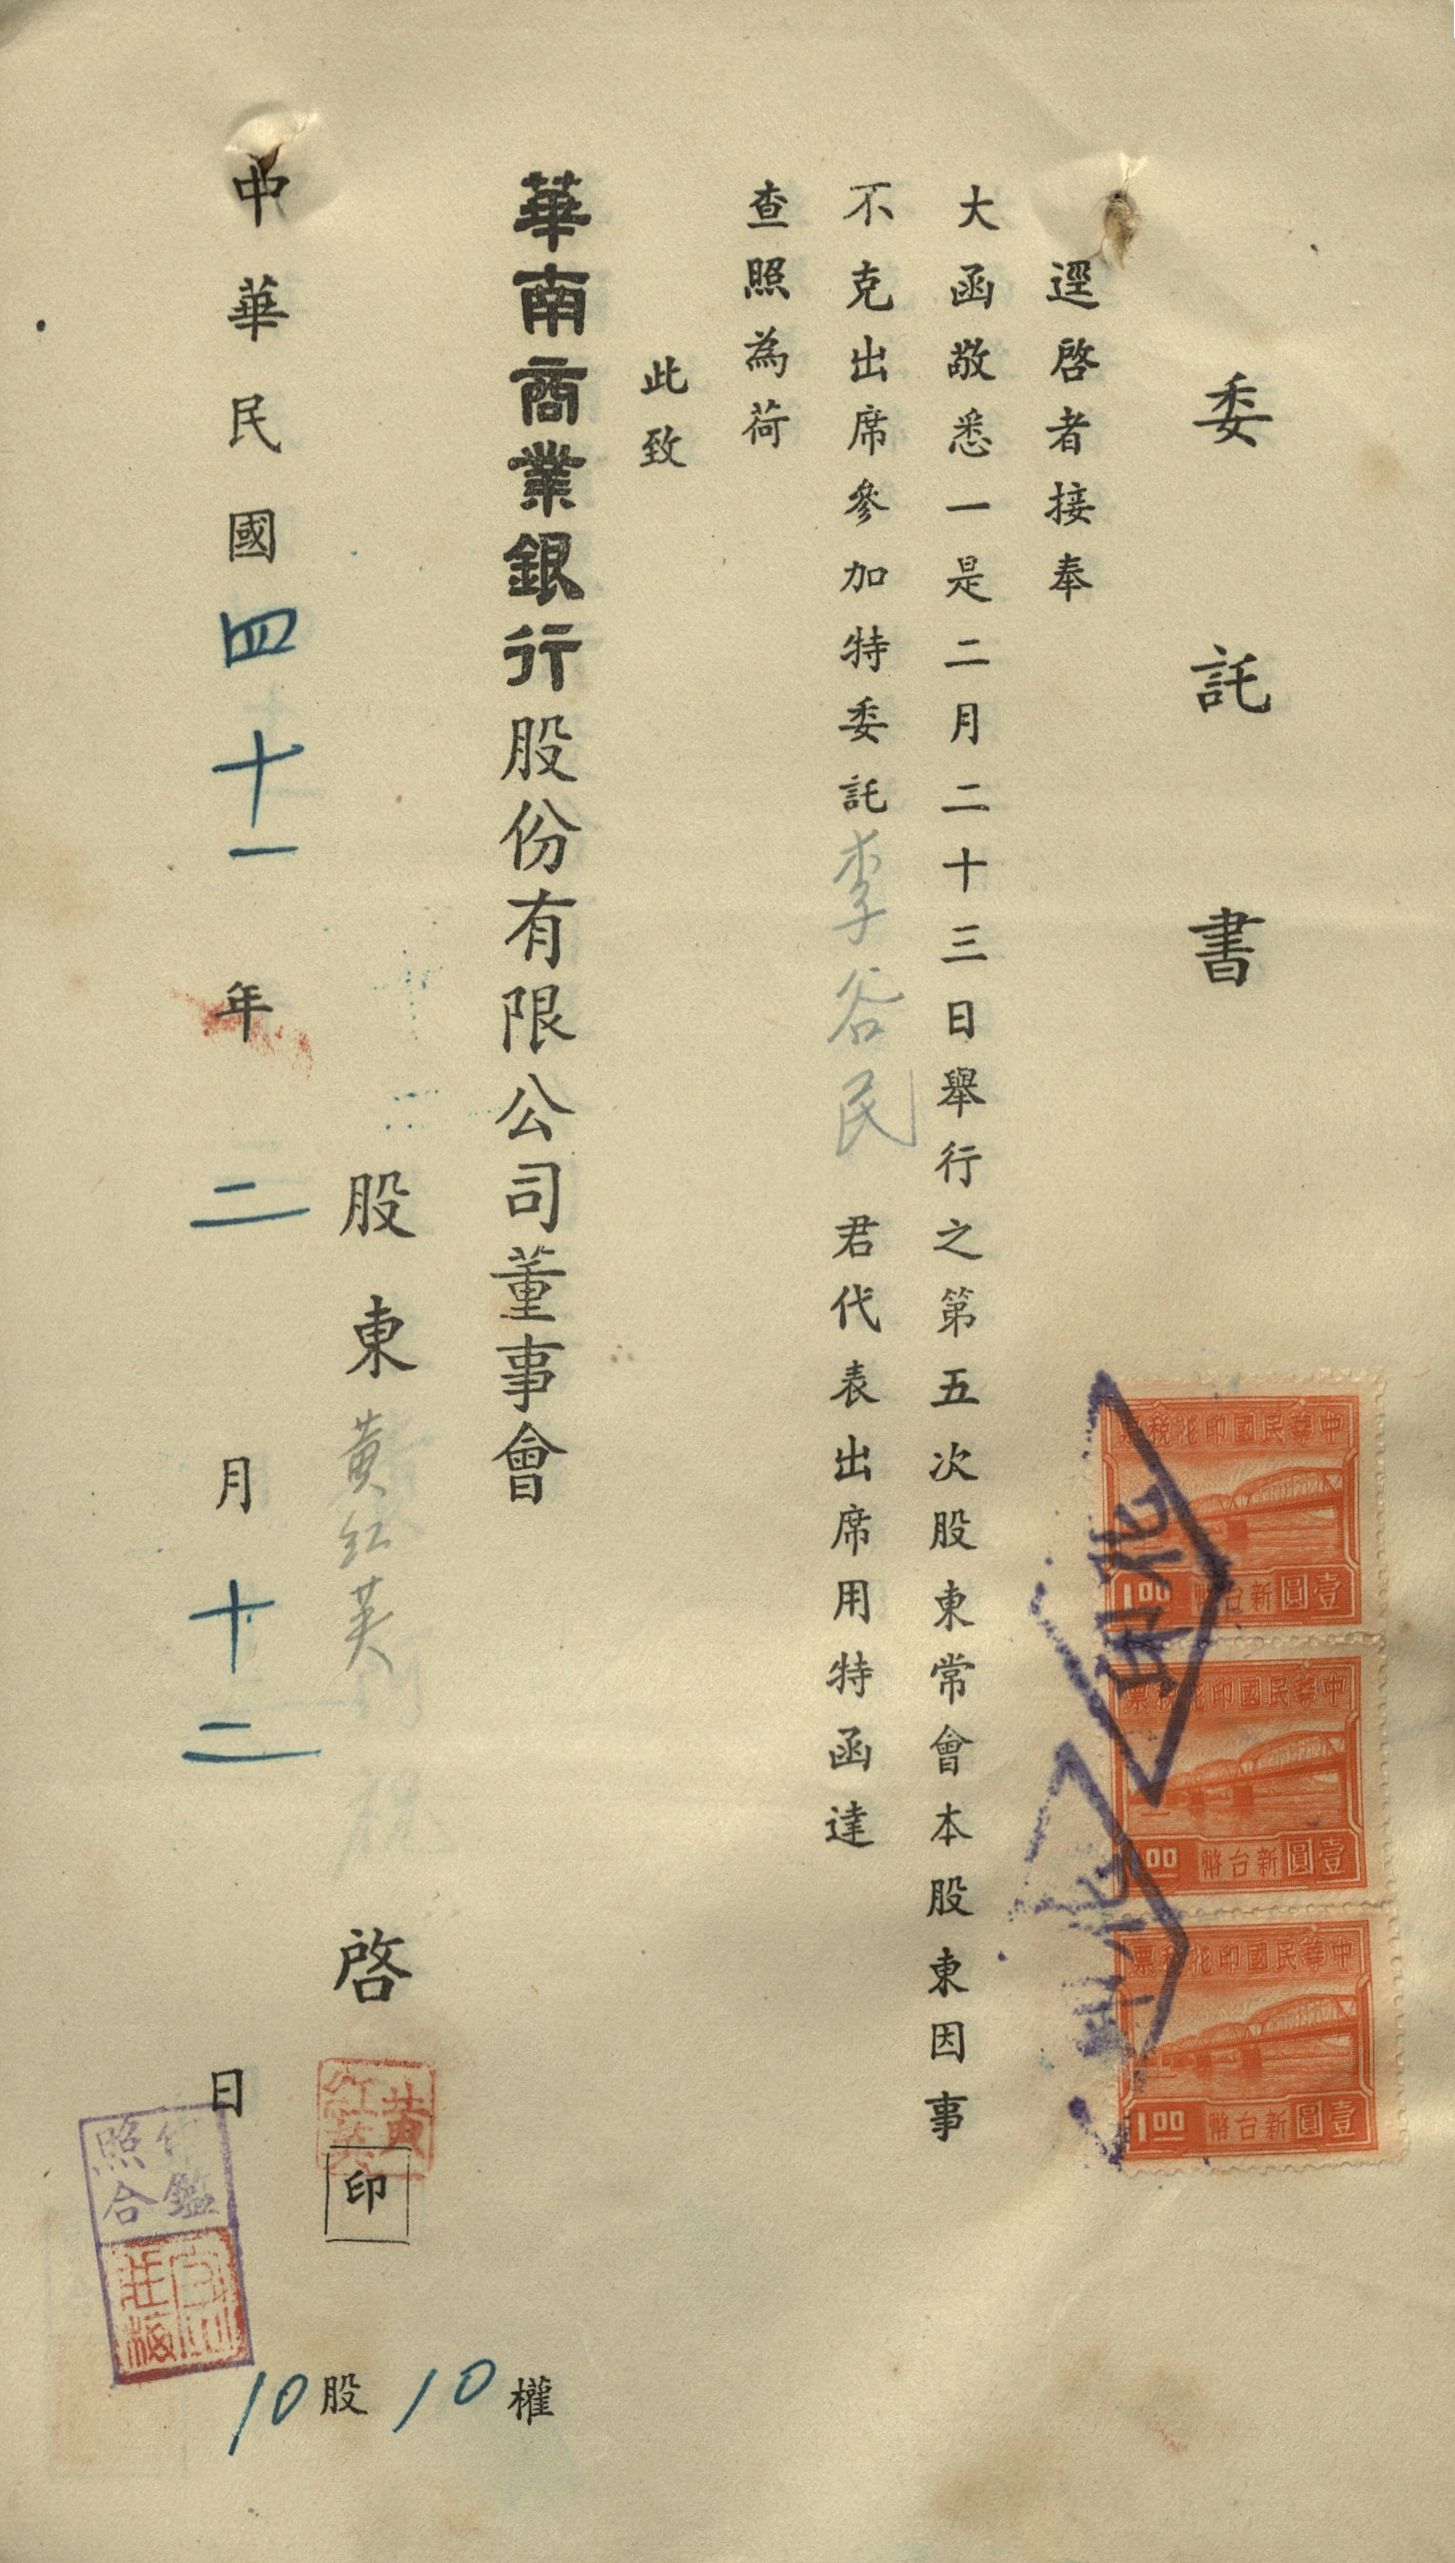 委託書
逕啓者接奉
大函敬悉一是二月二十三日舉行之第五次股東常會本股東因事
不克出席參加特委託李谷民君代表出席用特函達
查照為荷
此致
華南商業銀行股份有限公司董事會
股東黃紅英啓
黃紅英
印
中華民國四十一年二月十二日
10股10權
印鑑照合
中華民國印花稅票
1.00 新台幣壹圓
中華民國印花稅票
1.00 新台幣壹圓
中華民國印花稅票
1.00 新台幣壹圓